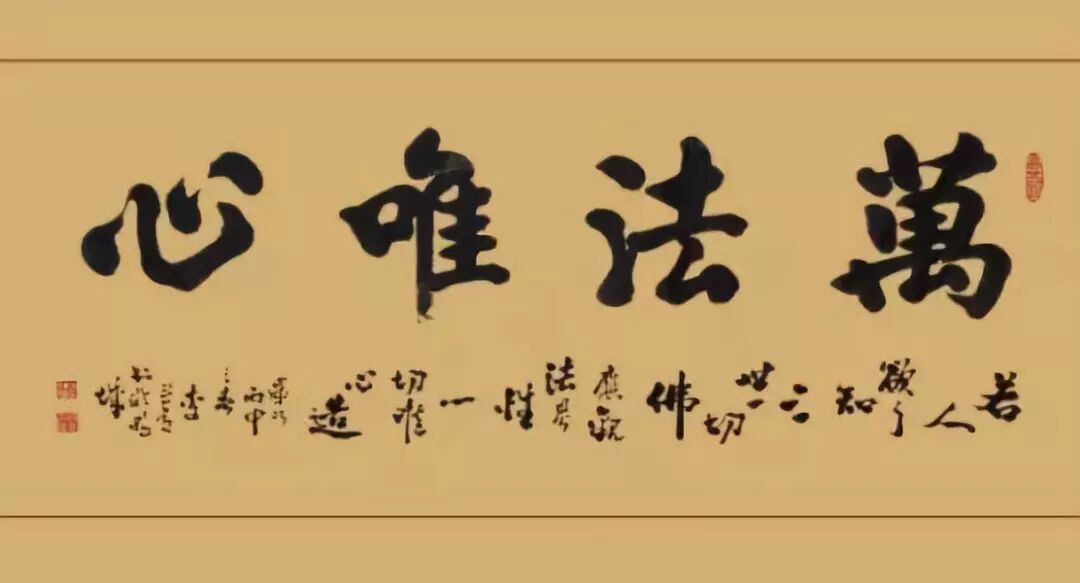 萬法唯心
若人欲了知三世一切佛應觀法界性一切唯心造
丙申